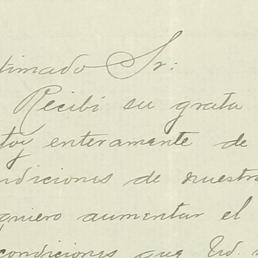 timado Sr:
Recibi su grata
toy enteramente de
ndiciones de nuestra
quiero aumentar el
condiciones que Ud.